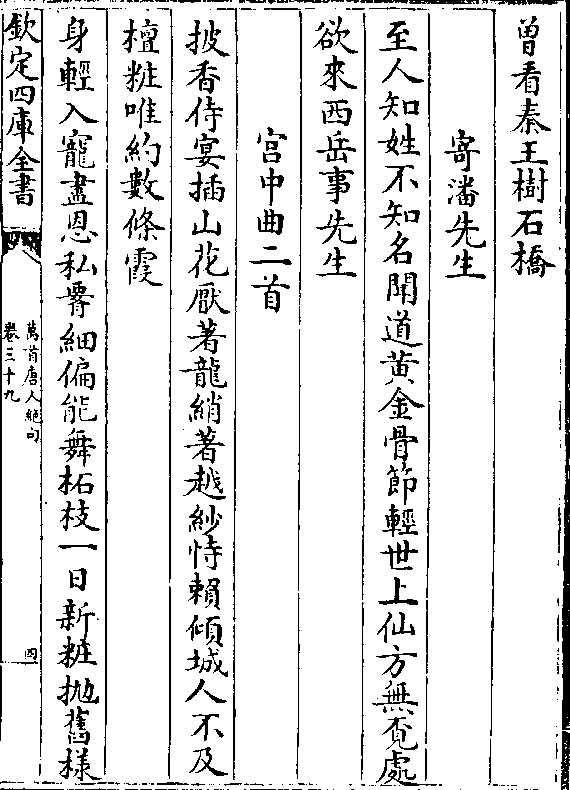 曽看秦王樹石橋
寄潘先生
至人知姓不知名聞道黄金骨節輕世上仙方無覓處
欲來西岳事先生
宫中曲二首
披香侍宴插山花厭著龍綃著越紗恃賴傾城人不及
檀粧唯約數條霞
身輕入寵盡恩私腰細偏能舞柘枝一日新粧抛舊様
欽定四庫全書
萬首唐人絶句
卷三十九
四